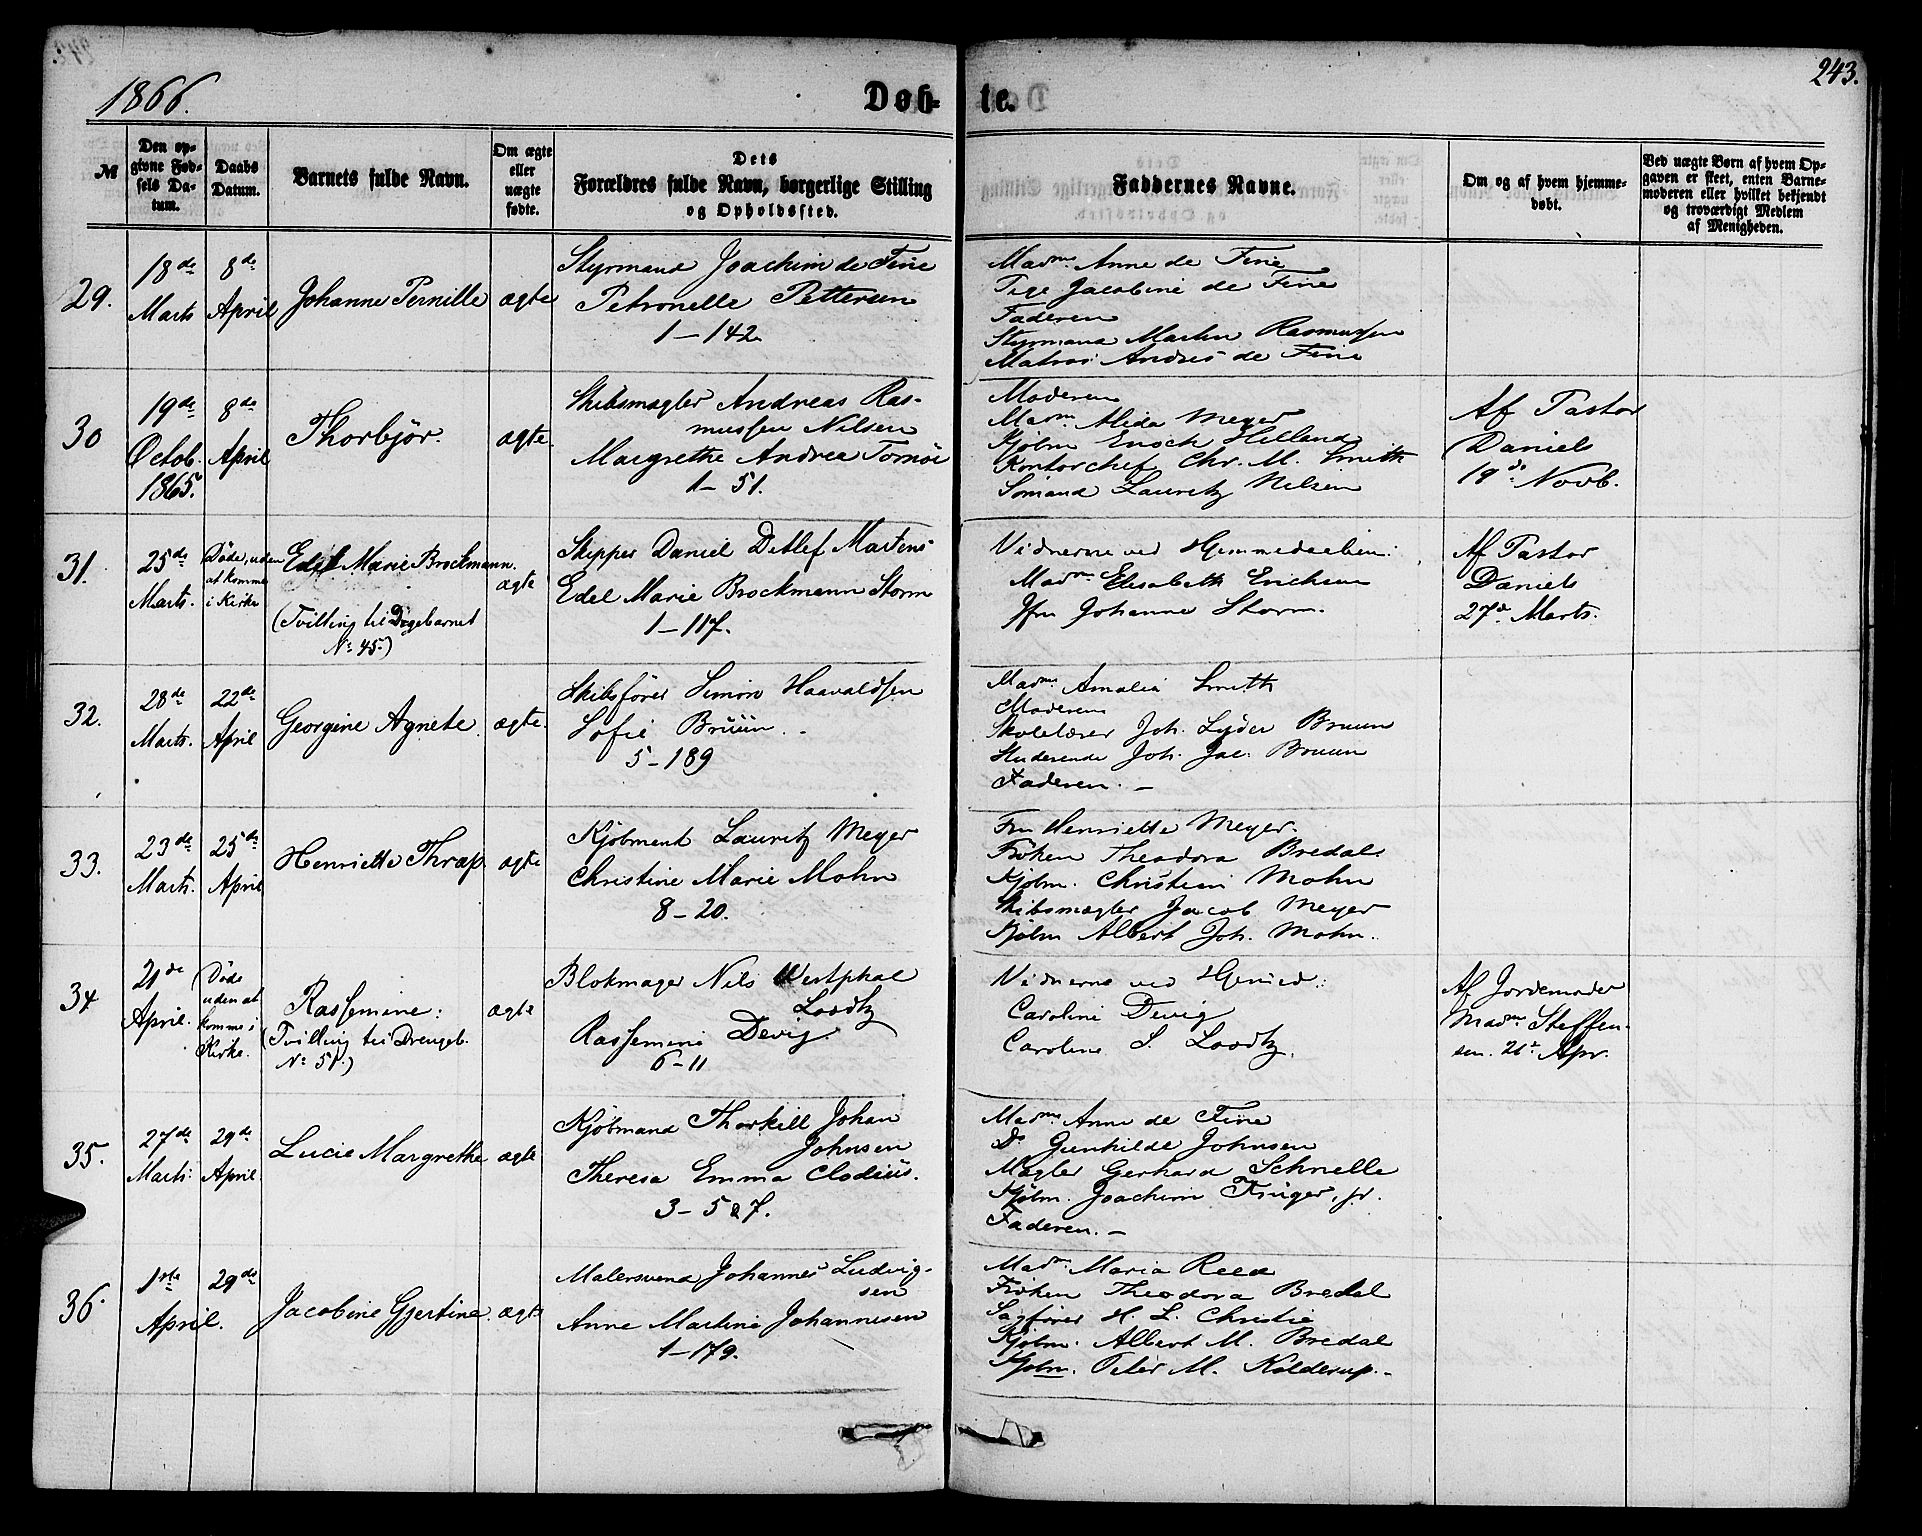 1866.
Døb-
te.
243.
№
Den op-
givne Fød-
sels Da-
tum.
Daabs
Datum.
Barnets fulde Navn.
Om ægte
eller
uægte
fødte.
Dets
Forældres fulde Navn, borgerlige Stilling
og Opholdssted.
Faddernes Navne.
Om og af hvem hjemme-
døbt.
Ved uægte Børn af hvem Op-
gaven er skeet, enten Barne-
moderen eller hvilket bekjendt
og troværdigt Medlem
af Menigheden.
29.
18de
Marts
8de
April
Johanne Pernille
ægte
Styrmand Joachim de Fine
Petronelle Pettersen
1 – 142.
Madme Anne de Fine
Pige Jacobine de Fine
Faderen
Styrmand Martin Rasmussen
Matros Andres de Fine
30
19de
Octob.
1865.
8de
April
Thorbjør.
ægte.
Skibsmægler Andreas Ras-
mussen Nilsen
Margrethe Andrea Tornöe
1 – 51.
Moderen
Madm Alida Meyer
Kjøbm Enoch Helland
Kontorchef Chr. M. Smith
Sömand Lauritz Nilsen
Af Pastor
Daniel
19de Novb.
31.
25de
Marts.
Døde, uden
at komme
i Kirke
Edel Marie Brockmann.
(Tvilling til Digebarnet
No 45.)
ægte
Skipper Daniel Detlef Martens
Edel Marie Brockmann Storm
1 – 117.
Vidnerne ved Hjemmedaaben:
Madm Elisabeth Erichsen
Jfr Johanne Storm.
Af Pastor
Daniel
27de Marts.
32.
28de
Marts.
22de
April
Georgine Agnete.
ægte.
Skibsfører Simon Haavaldsen
Sofie Brüün.
5 – 189
Madme Amalia Smith
Moderen
Skolelærer Joh. Lyder Bruun
Studerende Joh. Jac. Bruun
Faderen. –
33.
23de
Marts.
25de
April
Henriette Thrap.
ægte
Kjöbmand Lauritz Meyer
Christine Marie Mohn
8 – 20.
Fru Henriette Meyer.
Fröken Theodora Bredal.
Kjöbm. Christian Mohn
Skibsmægler Jacob Meyer
Kjöbm Albert Joh. Mohn.
34
21de
April.
Døde
uden at
komme i
Kirke.
Rassemine:
(Tvilling til Drengeb.
No 51.)
ægte
Blokmager Nils Westphal
Loodtz
Rassemine Devig.
6 – 11
Vidnerne ved Hjemmed.:
Caroline Devig
Caroline S. Loodtz.
Af Jordemoder
Madme Steffen-
sen. 26de Apr.
35.
27de
Marts.
29de
April
Lucie Margrethe
ægte
Kjöbmand Thorkill Johan
Johnsen
Theresa Emma Clodius.
3 – 5 & 7.
Madme Anne de Fine
Do Gunhilde Johnsen
Mægler Gerhard Schnelle
Kjöbm. Joachim Krüger, jr.
Faderen. –
36.
1ste
April.
29de
Jacobine Gjertine.
ægte
Malersvend Johannes Ludvig-
sen
Anne Martine Johannesen
1 – 179.
Madme Maria Reed
Fröken Theodora Bredal
Sagfører H. L. Christie
Kjöbm. Albert M. Bredal
Kjöbm. Peter M. Kolderup. –